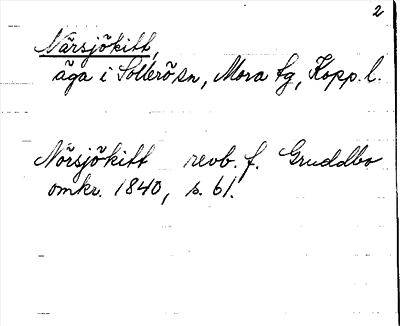 2
Närsjökitt,
äga i Sollerö sn, Mora tg, Kopp. l.
Nörsjökitt revb. f. Gruddbo
omkr. 1840, s. 61.